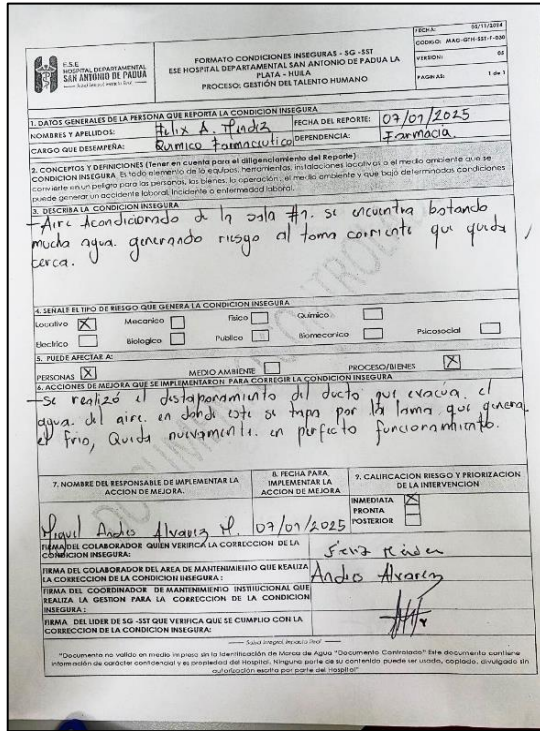 E.S.E
HOSPITAL DEPARTAMENTAL
SAN ANTONIO DE PADUA
FORMATO CONDICIONES INSEGURAS - SG -SST
ESE HOSPITAL DEPARTAMENTAL SAN ANTONIO DE PADUA LA
PLATA - HUILA
PROCESO: GESTIÓN DEL TALENTO HUMANO
FECHA: 05/11/2024
CODIGO: MAG-GTH-SST-F-030
VERSION: 05
PAGINAS: 1 de 1
1. DATOS GENERALES DE LA PERSONA QUE REPORTA LA CONDICION INSEGURA
NOMBRES Y APELLIDOS: Felix A. FECHA DEL REPORTE: 07/01/2025
CARGO QUE DESEMPEÑA: Quimico Farmaceutico DEPENDENCIA: Farmacia.
2. CONCEPTOS Y DEFINICIONES (Tener en cuenta para el diligenciamiento del Reporte)
CONDICION INSEGURA: Es todo elemento de la equipos, herramientas, instalaciones locativas o el medio ambiente que se
convierte en un peligro para las personas, los bienes, la operación, el medio ambiente y que bajo determinadas condiciones
puede generar un accidente laboral, incidente o enfermedad laboral.
3. DESCRIBA LA CONDICION INSEGURA
-Aire Acondicionado de la sala #1. se encuentra botando
mucha agua. generando riesgo al toma corriente que queda
cerca.
4. SEÑALE EL TIPO DE RIESGO QUE GENERA LA CONDICION INSEGURA
Locativo X Mecanico Fisico Quimico
Electrico Biologico Publico Biomecanico Psicosocial
5. PUEDE AFECTAR A:
PERSONAS X MEDIO AMBIENTE PROCESO/BIENES X
6. ACCIONES DE MEJORA QUE SE IMPLEMENTARON PARA CORREGIR LA CONDICION INSEGURA
-Se realizó el destaponamiento del ducto que evacúa. el
agua. del aire. en donde este se tapa por la lama que genera
el frio, Queda nuevamente. en perfecto funcionamiento.
7. NOMBRE DEL RESPONSABLE DE IMPLEMENTAR LA
ACCION DE MEJORA.
8. FECHA PARA
IMPLEMENTAR LA
ACCION DE MEJORA
9. CALIFICACION RIESGO Y PRIORIZACION
DE LA INTERVENCION
INMEDIATA X
PRONTA
POSTERIOR
Miguel Andres Alvarez M. 07/01/2025
FIRMA DEL COLABORADOR QUIEN VERIFICA LA CORRECCION DE LA
CONDICION INSEGURA:
FIRMA DEL COLABORADOR DEL AREA DE MANTENIMIENTO QUE REALIZA
LA CORRECCION DE LA CONDICION INSEGURA: Andres Alvarez
FIRMA DEL COORDINADOR DE MANTENIMIENTO INSTITUCIONAL QUE
REALIZA LA GESTION PARA LA CORRECCION DE LA CONDICION
INSEGURA:
FIRMA DEL LIDER DE SG -SST QUE VERIFICA QUE SE CUMPLIO CON LA
CORRECCION DE LA CONDICION INSEGURA:
Salud Integral, Impacto Real
"Documento no valido en medio impreso sin la identificación de Marca de Agua "Documento Controlado" Este documento contiene
información de carácter confidencial y es propiedad del Hospital. Ninguna parte de su contenido puede ser usado, copiado, divulgado sin
autorización escrita por parte del Hospital"